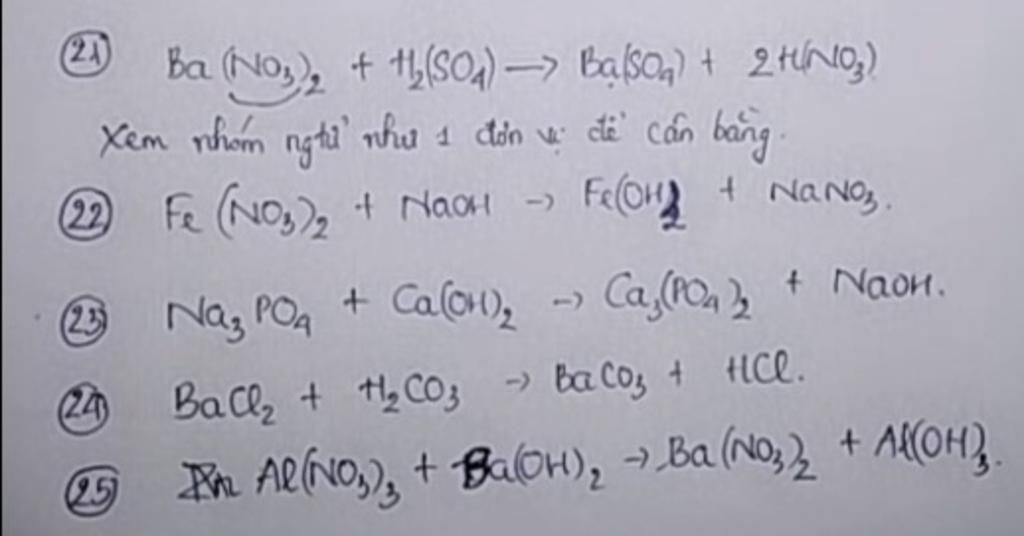 21 Ba(NO₃)₂ + H₂(SO₄) → Ba(SO₄) + 2H(NO₃)
Xem nhóm ngtử như 1 đơn vị để cân bằng.
22 Fe(NO₃)₂ + NaOH → Fe(OH)₂ + NaNO₃.
23 Na₃PO₄ + Ca(OH)₂ → Ca₃(PO₄)₂ + NaOH.
24 BaCl₂ + H₂CO₃ → BaCO₃ + HCl.
25 Al(NO₃)₃ + Ba(OH)₂ → Ba(NO₃)₂ + Al(OH)₃.